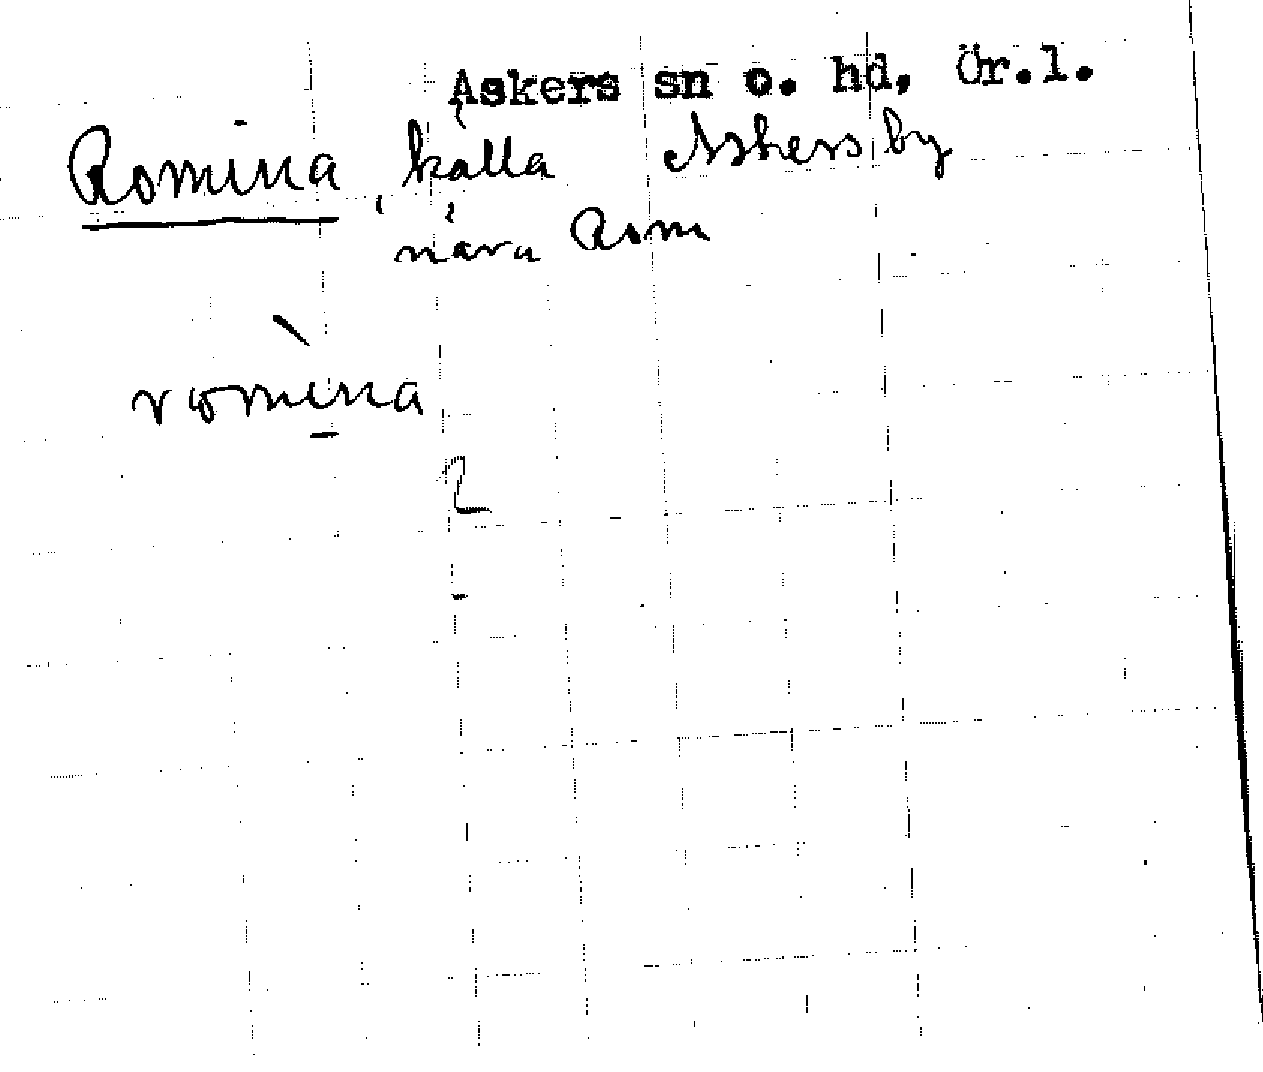 Askers sn o. hd, Ör.l.
Romina, källa Askersby
nära Rom
romina
2